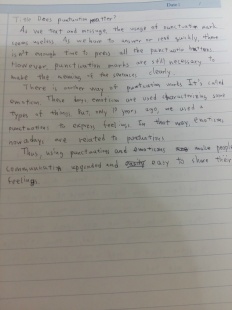 Does punctuation matter?
As we text and message, the usage of punctuation mark
seems useless. As we have to answer or send quickly, there
isn't enough time to press all the punctuation buttons.
However, punctuation marks are still necessary to
make the meaning of the sentences clearly.
There is another way of punctuation marks. It's called
emoticon. These days emoticons are used characterizing some
types of things. But only years ago, we used a
punctuations to express feelings. In that way, emoticons,
nowadays, are related to punctuations.
Thus, using punctuations and emoticons make people
communication upgraded and easy to share their
feelings.